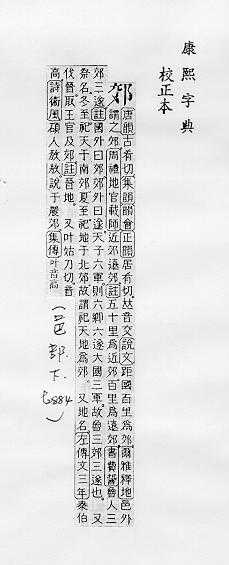 康熙字典
校正本
郊 唐韻古肴切集韻韻會正韻居肴切𠀤音交說文距國百里爲郊爾雅釋地邑外
謂之郊周禮地官載師近郊遠郊註五十里爲近郊百里爲遠郊書費誓魯人三
郊三遂註國外曰郊郊外曰遂天子六軍則六卿六遂大國三軍故魯三郊三遂也又
祭名冬至祀天于南郊夏至祀地于北郊故謂祀天地爲郊 又地名左傳文三年秦伯
伐晉取王官及郊註晉地 又叶姑刀切音
高詩衞風碩人敖敖說于農郊集傳叶音高
(邑部.下.